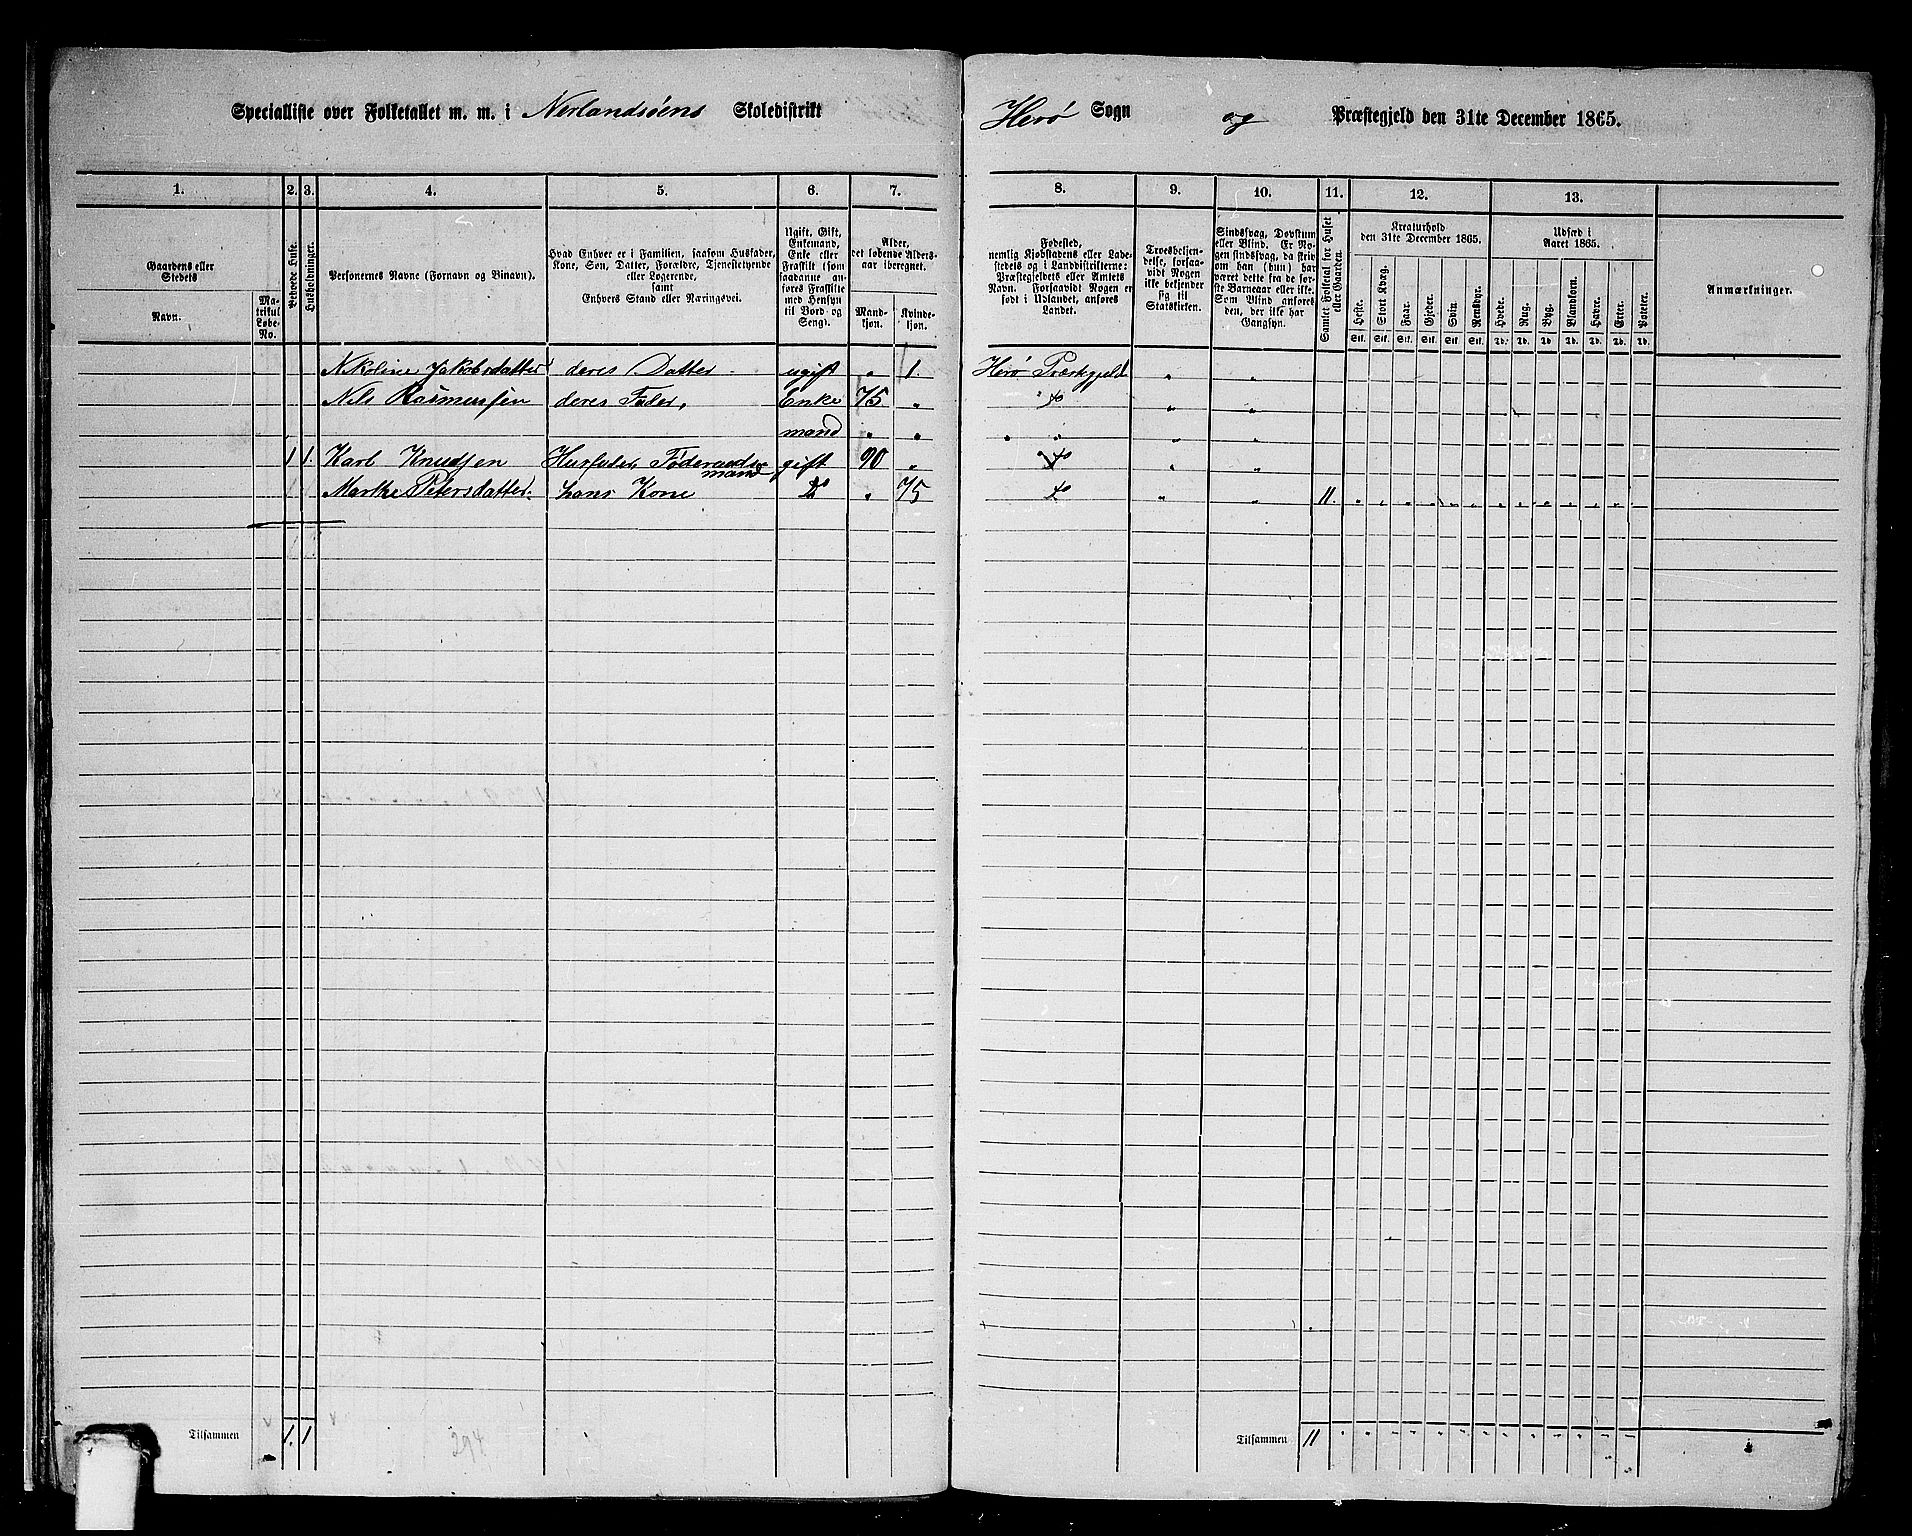 Specialliste over Folketallet m. m. i Nerlandsøens Skoledistrikt
Herø Sogn og Præstegjeld den 31te December 1865.
1. 2. 3. 4. 5. 6. 7.
8. 9. 10. 11. 12. 13.
Gaardens eller Stedets
Navn.
Matrikul Løbe-No.
Beboede Huse.
Husholdninger.
Personernes Navne (Fornavn og Binavn).
Hvad Enhver er i Familien, saasom Husfader,
Kone, Søn, Datter, Forældre, Tjenestetyende
eller Logerende,
samt
Enhvers Stand eller Næringsvei.
Ugift, Gift,
Enkemand,
Enke eller
Fraskilt (som
saadanne an-
føres Fraskilte
med Hensyn
til Bord og
Seng).
Alder,
det løbende Alders-
aar iberegnet.
Mand-
kjøn.
Kvinde-
kjøn.
Fødested,
nemlig Kjøbstadens eller Lade-
stedets og i Landdistrikterne:
Præstegjeldets eller Amtets
Navn. Forsaavidt Nogen er
født i Udlandet, anføres
Landet.
Troesbekjen-
delse, forsaa-
vidt Nogen
ikke bekjender
sig til
Statskirken.
Sindssvag, Døvstum
eller Blind. Er No-
gen sindssvag, da skriv
om han (hun) har
været dette fra de før-
ste Barneaar eller ikke.
Som Blind anføres
den, der ikke har
Gangsyn.
Samlet Folketal for Huset
eller Gaarden.
Kreaturhold
den 31te December 1865.
Heste. Stort Kvæg. Faar. Gjeder. Svin. Rensdyr.
Stk. Stk. Stk. Stk. Stk. Stk.
Udsæd i
Aaret 1865.
Hvede. Rug. Byg. Blandkorn. Havre. Erter. Poteter.
Td. Td. Td. Td. Td. Td. Td.
Anmærkninger.
Nikoline Jakobsdatter deres Datter ugift " 1. Herø Præstegjeld " "
Nils Rasmussen deres Fader, Enke 75 " do " "
mand " " " " " "
1 1. Karl Knudsen Husfader, Føderaads- gift 90 " do " "
mand
Marthe Petersdatter. hans Kone do " 75 do " " 11. " " " " " " " " " " " " "
Tilsammen 1. 1
294
Tilsammen 11 " " " " " " " " " " " " "